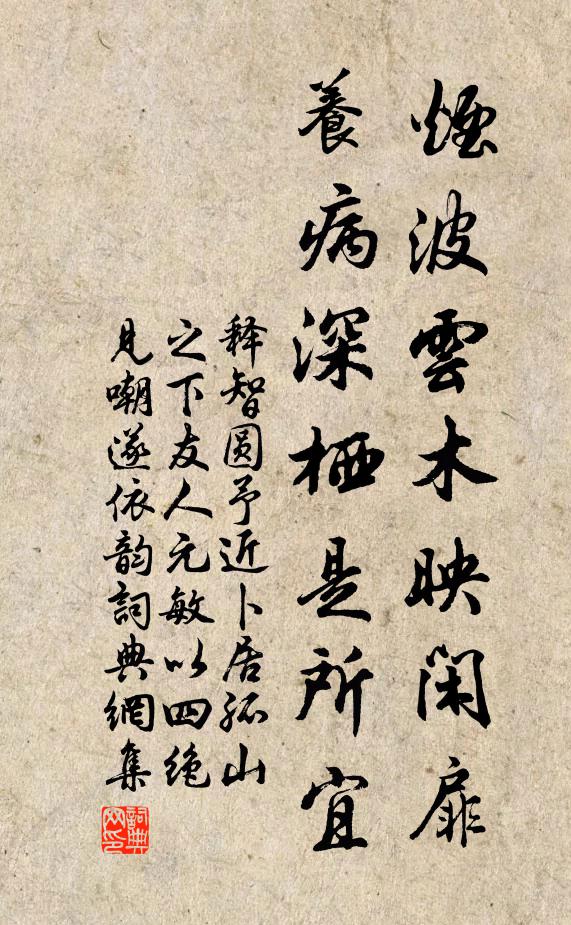 煙波雲木映閑扉
養病深栖是所宜
释智圆予近卜居孤山
之下友人元敏以四绝
見嘲遂依韵詞典網集
詞典网印